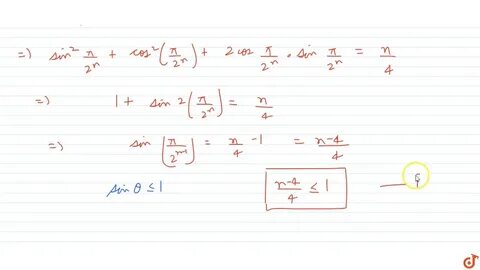 =) sin² π/2ⁿ + cos² (π/2ⁿ) + 2 cos π/2ⁿ · sin π/2ⁿ = n/4
=) 1 + sin 2 (π/2ⁿ) = n/4
=) sin [π/2ⁿ⁻¹] = n/4 - 1 = n-4/4
sin θ ≤ 1 n-4/4 ≤ 1